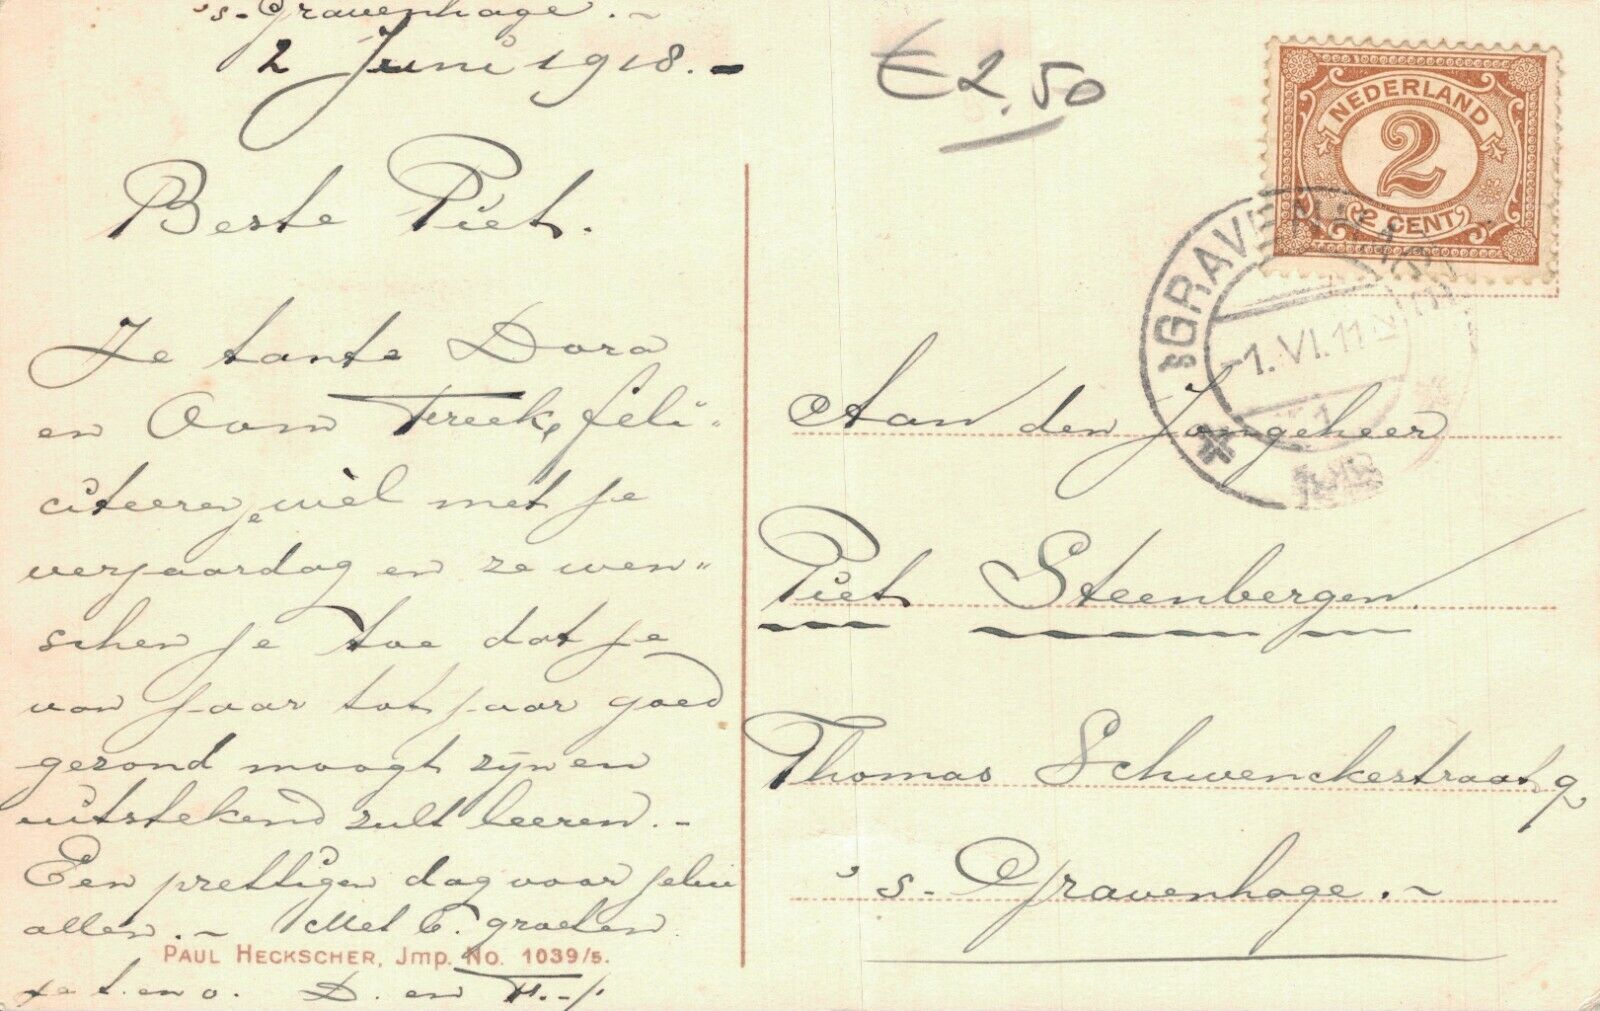 's-Gravenhage.~
2 Juni 1918.-
Beste Piet.
Je tante Dora
en Oom Freek, feli-
citeeren je wèl met je
verjaardag en ze wen"
schen je toe dat je
van jaar tot jaar goed
gezond moogt zijn en
uitstekend zult leeren.-
Een prettigen dag voor jelui
allen.~ Met b. groeten
je t. en o. D. en F.-
PAUL HECKSCHER, Jmp. No. 1039/s.
€ 2,50
NEDERLAND
2
2 CENT 2
'sGRAVENHAGE
-1.VI.11
1
Aan den Jongeheer
Piet Steenbergen.
Thomas Schwenckestraat 9
's-Gravenhage.~